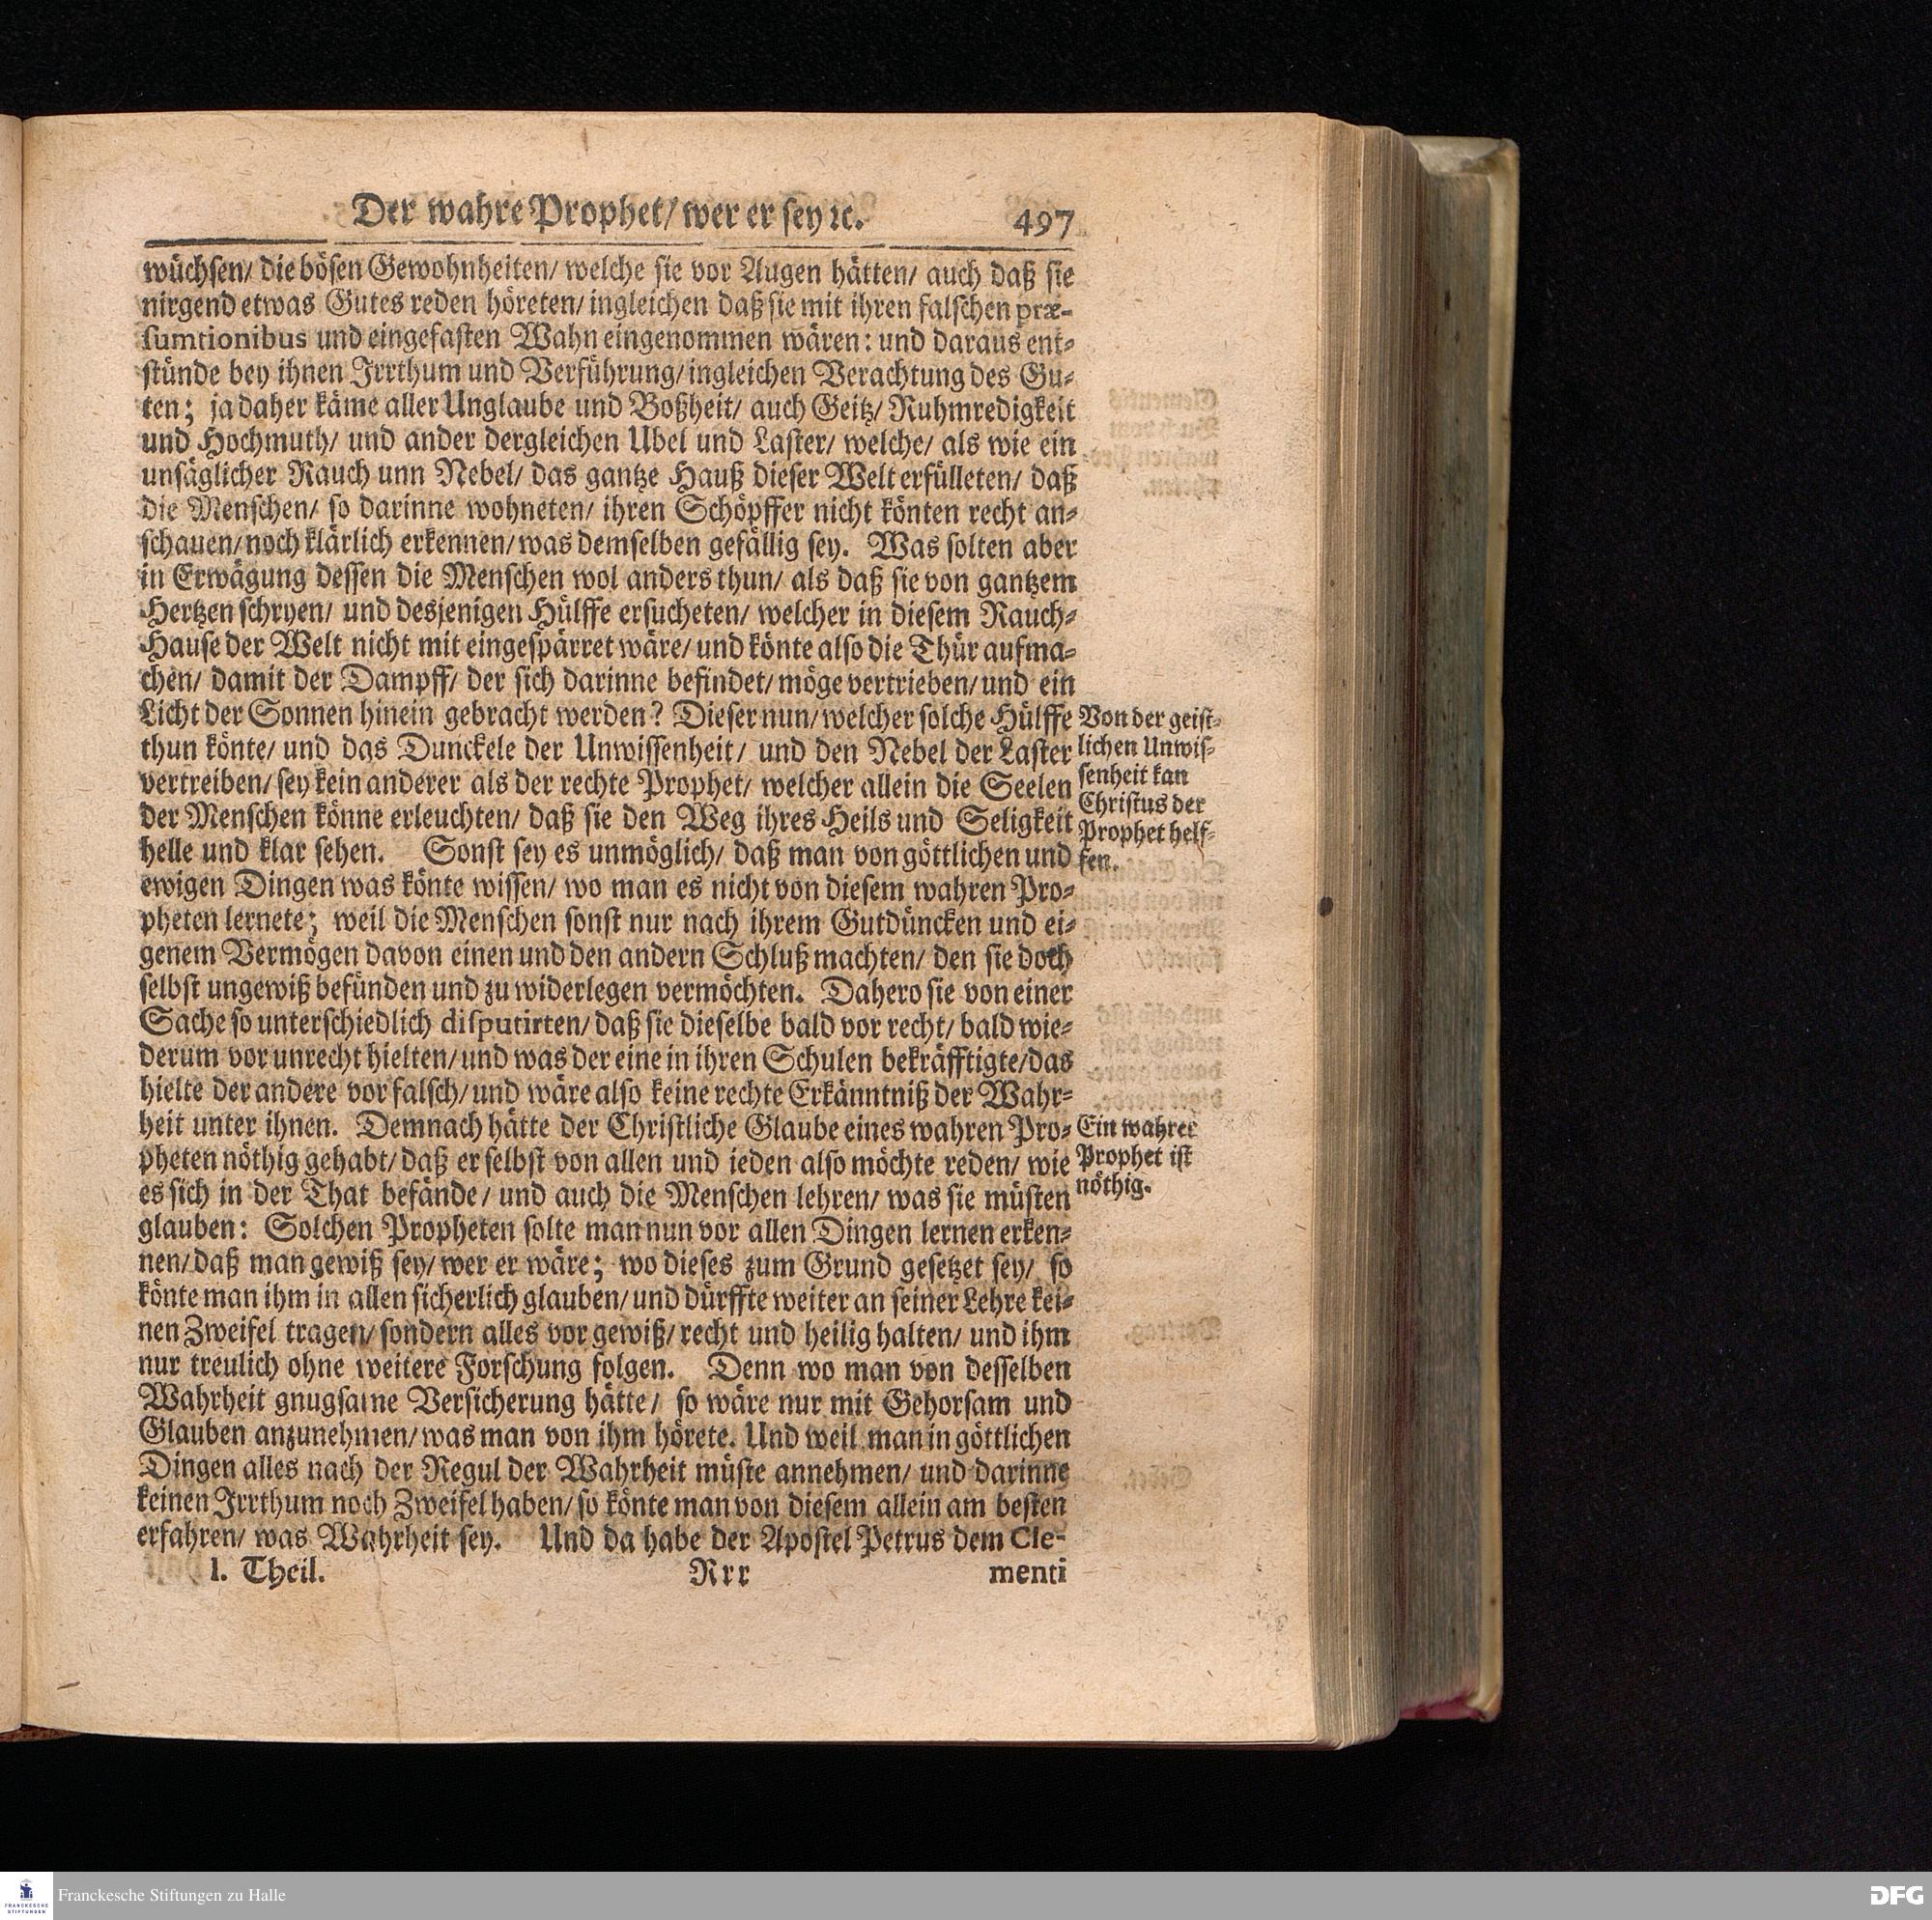 Der wahre Prophet/ wer er sey ꝛc. 497
wüchsen/ die bösen Gewohnheiten/ welche sie vor Augen hätten/ auch daß sie
nirgend etwas Gutes reden höreten/ ingleichen daß sie mit ihren falschen præ-
sumtionibus und eingefasten Wahn eingenommen wären: und daraus ent-
stünde bey ihnen Irrthum und Verführung/ ingleichen Verachtung des Gu-
ten; ja daher käme aller Unglaube und Boßheit/ auch Geitz/ Ruhmredigkeit
und Hochmuth/ und ander dergleichen Ubel und Laster/ welche/ als wie ein
unsäglicher Rauch unn Nebel/ das gantze Hauß dieser Welt erfülleten/ daß
die Menschen/ so darinne wohneten/ ihren Schöpffer nicht könten recht an-
schauen/ noch klärlich erkennen/ was demselben gefällig sey. Was solten aber
in Erwägung dessen die Menschen wol anders thun/ als daß sie von gantzem
Hertzen schryen/ und desjenigen Hülffe ersucheten/ welcher in diesem Rauch-
Hause der Welt nicht mit eingespärret wäre/ und könte also die Thür aufma-
chen/ damit der Dampff/ der sich darinne befindet/ möge vertrieben/ und ein
Licht der Sonnen hinein gebracht werden? Dieser nun/ welcher solche Hülffe
thun könte/ und das Dunckele der Unwissenheit/ und den Nebel der Laster
vertreiben/ sey kein anderer als der rechte Prophet/ welcher allein die Seelen
der Menschen könne erleuchten/ daß sie den Weg ihres Heils und Seligkeit
helle und klar sehen. Sonst sey es unmöglich/ daß man von göttlichen und
ewigen Dingen was könte wissen/ wo man es nicht von diesem wahren Pro-
pheten lernete; weil die Menschen sonst nur nach ihrem Gutdüncken und ei-
genem Vermögen davon einen und den andern Schluß machten/ den sie doch
selbst ungewiß befünden und zu widerlegen vermöchten. Dahero sie von einer
Sache so unterschiedlich disputirten/ daß sie dieselbe bald vor recht/ bald wie-
derum vor unrecht hielten/ und was der eine in ihren Schulen bekräfftigte/ das
hielte der andere vor falsch/ und wäre also keine rechte Erkänntniß der Wahr-
heit unter ihnen. Demnach hätte der Christliche Glaube eines wahren Pro-
pheten nöthig gehabt/ daß er selbst von allen und ieden also möchte reden/ wie
es sich in der That befände/ und auch die Menschen lehren/ was sie müsten
glauben: Solchen Propheten solte man nun vor allen Dingen lernen erken-
nen/ daß man gewiß sey/ wer er wäre; wo dieses zum Grund gesetzet sey/ so
könte man ihm in allen sicherlich glauben/ und dürffte weiter an seiner Lehre kei-
nen Zweifel tragen/ sondern alles vor gewiß/ recht und heilig halten/ und ihm
nur treulich ohne weitere Forschung folgen. Denn wo man von desselben
Wahrheit gnugsame Versicherung hätte/ so wäre nur mit Gehorsam und
Glauben anzunehmen/ was man von ihm hörete. Und weil man in göttlichen
Dingen alles nach der Regul der Wahrheit müste annehmen/ und darinne
keinen Irrthum noch Zweifel haben/ so könte man von diesem allein am besten
erfahren/ was Wahrheit sey. Und da habe der Apostel Petrus dem Cle-
I. Theil. Rrr menti
Von der geist-
lichen Unwis-
senheit kan
Christus der
Prophet helf-
fen.
Ein wahrer
Prophet ist
nöthig.
FRANCKESCHE
STIFTUNGEN
Franckesche Stiftungen zu Halle
DFG